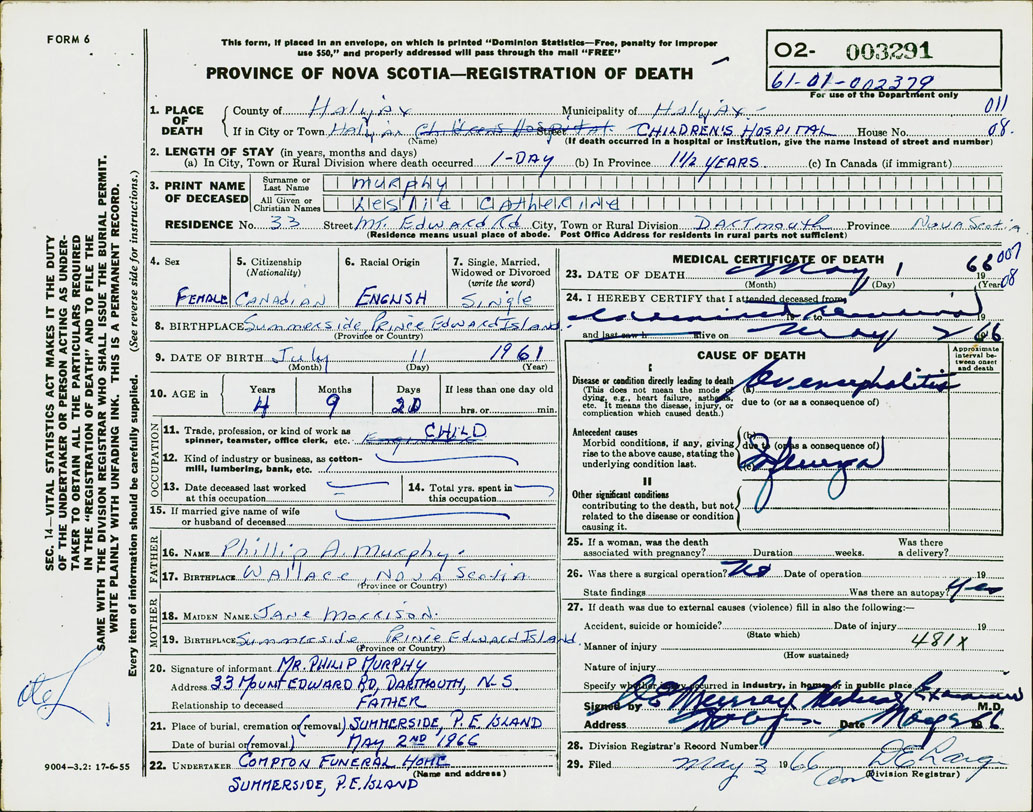 FORM 6
This form, if placed in an envelope, on which is printed "Dominion Statistics—Free, penalty for improper
use $50," and properly addressed will pass through the mail "FREE"
PROVINCE OF NOVA SCOTIA—REGISTRATION OF DEATH
02- 003291
61-01-002379
For use of the Department only
1. PLACE OF DEATH County of Halifax Municipality of Halifax 011
If in City or Town Halifax Children's Hospital Street CHILDREN'S HOSPITAL House No. 08.
(Name) (If death occurred in a hospital or institution, give the name instead of street and number)
2. LENGTH OF STAY (in years, months and days)
(a) In City, Town or Rural Division where death occurred 1-DAY (b) In Province 1½ YEARS (c) In Canada (if immigrant)
3. PRINT NAME OF DECEASED
Surname or Last Name Murphy
All Given or Christian Names Leslie Catherine
RESIDENCE No. 33 Street Mt. Edward Rd City, Town or Rural Division Dartmouth Province Nova Scotia
(Residence means usual place of abode. Post Office Address for residents in rural parts not sufficient)
4. Sex FEMALE
5. Citizenship (Nationality) Canadian
6. Racial Origin ENGLISH
7. Single, Married, Widowed or Divorced (write the word) Single
8. BIRTHPLACE Summerside, Prince Edward Island.
(Province or Country)
9. DATE OF BIRTH July 11 1961
(Month) (Day) (Year)
10. AGE in Years 4 Months 9 Days 20 If less than one day old hrs. or min.
OCCUPATION
11. Trade, profession, or kind of work as spinner, teamster, office clerk, etc. CHILD
12. Kind of industry or business, as cotton-mill, lumbering, bank, etc.
13. Date deceased last worked at this occupation
14. Total yrs. spent in this occupation
15. If married give name of wife or husband of deceased
FATHER
16. NAME Phillip A. Murphy.
17. BIRTHPLACE Wallace, Nova Scotia
(Province or Country)
MOTHER
18. MAIDEN NAME Jane Morrison.
19. BIRTHPLACE Summerside Prince Edward Island
(Province or Country)
20. Signature of informant MR. PHILIP MURPHY
Address 33 MOUNT EDWARD RD, DARTMOUTH, N-S
Relationship to deceased FATHER
21. Place of burial, cremation or (removal) SUMMERSIDE, P.E. ISLAND
Date of burial or (removal) MAY 2ND 1966
22. UNDERTAKER COMPTON FUNERAL HOME
(Name and address)
SUMMERSIDE, P.E. ISLAND
MEDICAL CERTIFICATE OF DEATH
23. DATE OF DEATH May 1 1966 007
(Month) (Day) (Year) 08
24. I HEREBY CERTIFY that I attended deceased from
19 to
and last saw h alive on May 2 1966
CAUSE OF DEATH
Approximate interval between onset and death
I
Disease or condition directly leading to death
(This does not mean the mode of dying, e.g., heart failure, asthenia, etc. It means the disease, injury, or complication which caused death.)
(a)
due to (or as a consequence of)
Antecedent causes
Morbid conditions, if any, giving rise to the above cause, stating the underlying condition last.
(b)
due to (or as a consequence of)
(c)
II
Other significant conditions
contributing to the death, but not related to the disease or condition causing it.
25. If a woman, was the death associated with pregnancy? Duration weeks. Was there a delivery?
26. Was there a surgical operation? No Date of operation 19
State findings Was there an autopsy? Yes
27. If death was due to external causes (violence) fill in also the following:—
Accident, suicide or homicide? Date of injury 19
(State which)
Manner of injury 481X
(How sustained)
Nature of injury
Specify whether injury occurred in industry, in home or in public place
Signed by Medical Examiner M.D.
Address Halifax Date
28. Division Registrar's Record Number
29. Filed May 3 1966
(Division Registrar)
SEC. 14—VITAL STATISTICS ACT MAKES IT THE DUTY
OF THE UNDERTAKER OR PERSON ACTING AS UNDER-
TAKER TO OBTAIN ALL THE PARTICULARS REQUIRED
IN THE "REGISTRATION OF DEATH" AND TO FILE THE
SAME WITH THE DIVISION REGISTRAR WHO SHALL ISSUE THE BURIAL PERMIT.
WRITE PLAINLY WITH UNFADING INK. THIS IS A PERMANENT RECORD.
Every item of information should be carefully supplied. (See reverse side for instructions.)
9004—3.2: 17-6-55